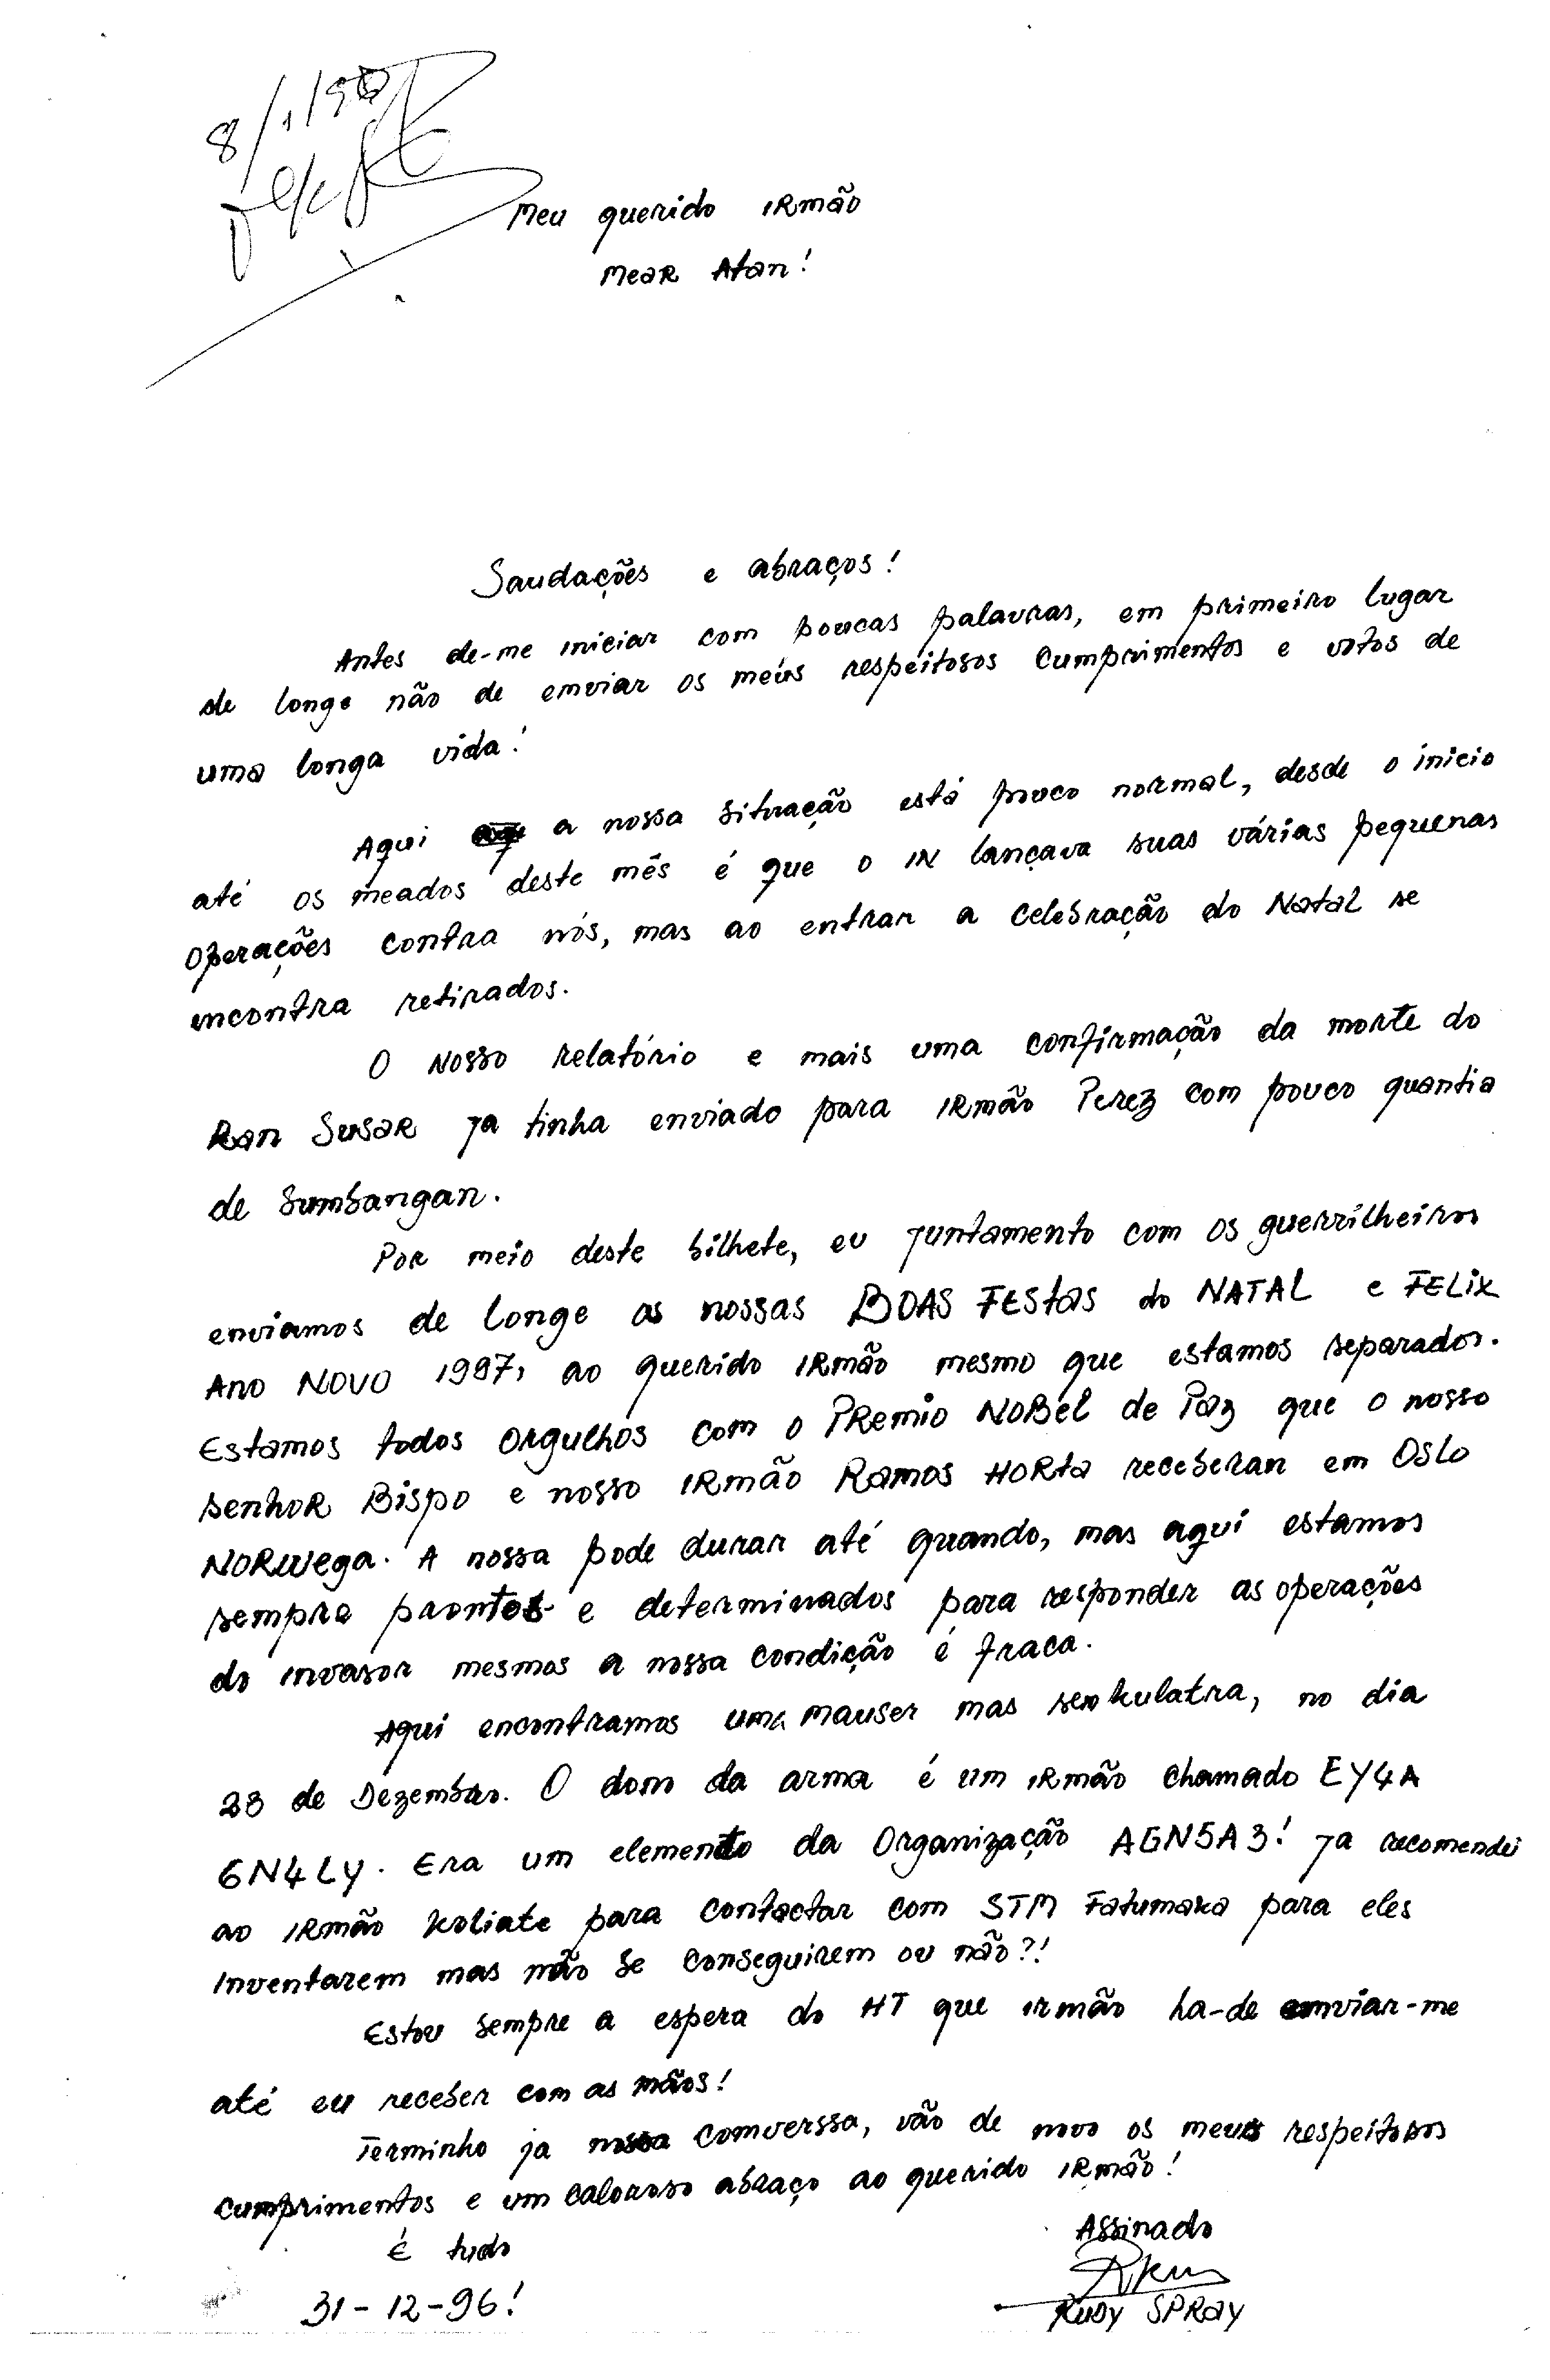 8/1/97
Meu querido IRmão
Mear Atan!
Saudações e abraços!
Antes de-me iniciar com poucas palavras, em primeiro lugar
de longe não de emviar os meus respeitosos cumprimentos e votos de
uma longa vida!
Aqui a nossa situação está pouco normal, desde o ínicio
até os meados deste mês é que o IN lançava suas várias pequenas
operações contra nós, mas ao entrar a celebração do Natal se
encontra retirados.
O Nosso relatório e mais uma confirmação da morte do
Ran Susar ja tinha enviado para IRmão Perez com pouco quantia
de Sumbangan.
Por meio deste bilhete, eu juntamento com os guerrilheiros
enviamos de longe as nossas BOAS FEStas do NATAL e FELiX
Ano NOVO 1997, ao querido IRmão mesmo que estamos separados.
Estamos todos orgulhos com o PRemio NOBel de Paz que o nosso
senhoR Bispo e nosso IRmão Ramos HORta receberan em Oslo
NORwega. A nossa pode durar até quando, mas aqui estamos
sempre prontos e determinados para responder as operações
do invasor mesmos a nossa condição é fraca.
Aqui encontramos uma mauser mas sem kulatra, no dia
23 de Dezembro. O dom da arma é um IRmão chamado EY4A
6N4LY. Era um elemento da Organização AGN5A3! Ja recomendei
ao IRmão Koliate para contactar com STM Fatumaka para eles
inventarem mas não se conseguirem ou não?!
Estou sempre a espera do HT que irmão ha-de emviar-me
até eu receber com as mãos!
Terminho ja nossa comverssa, vão de novo os meus respeitosos
cumprimentos e um caloroso abraço ao querido IRmão!
É tudo
Assinado
31-12-96!
RUDY SPRAY